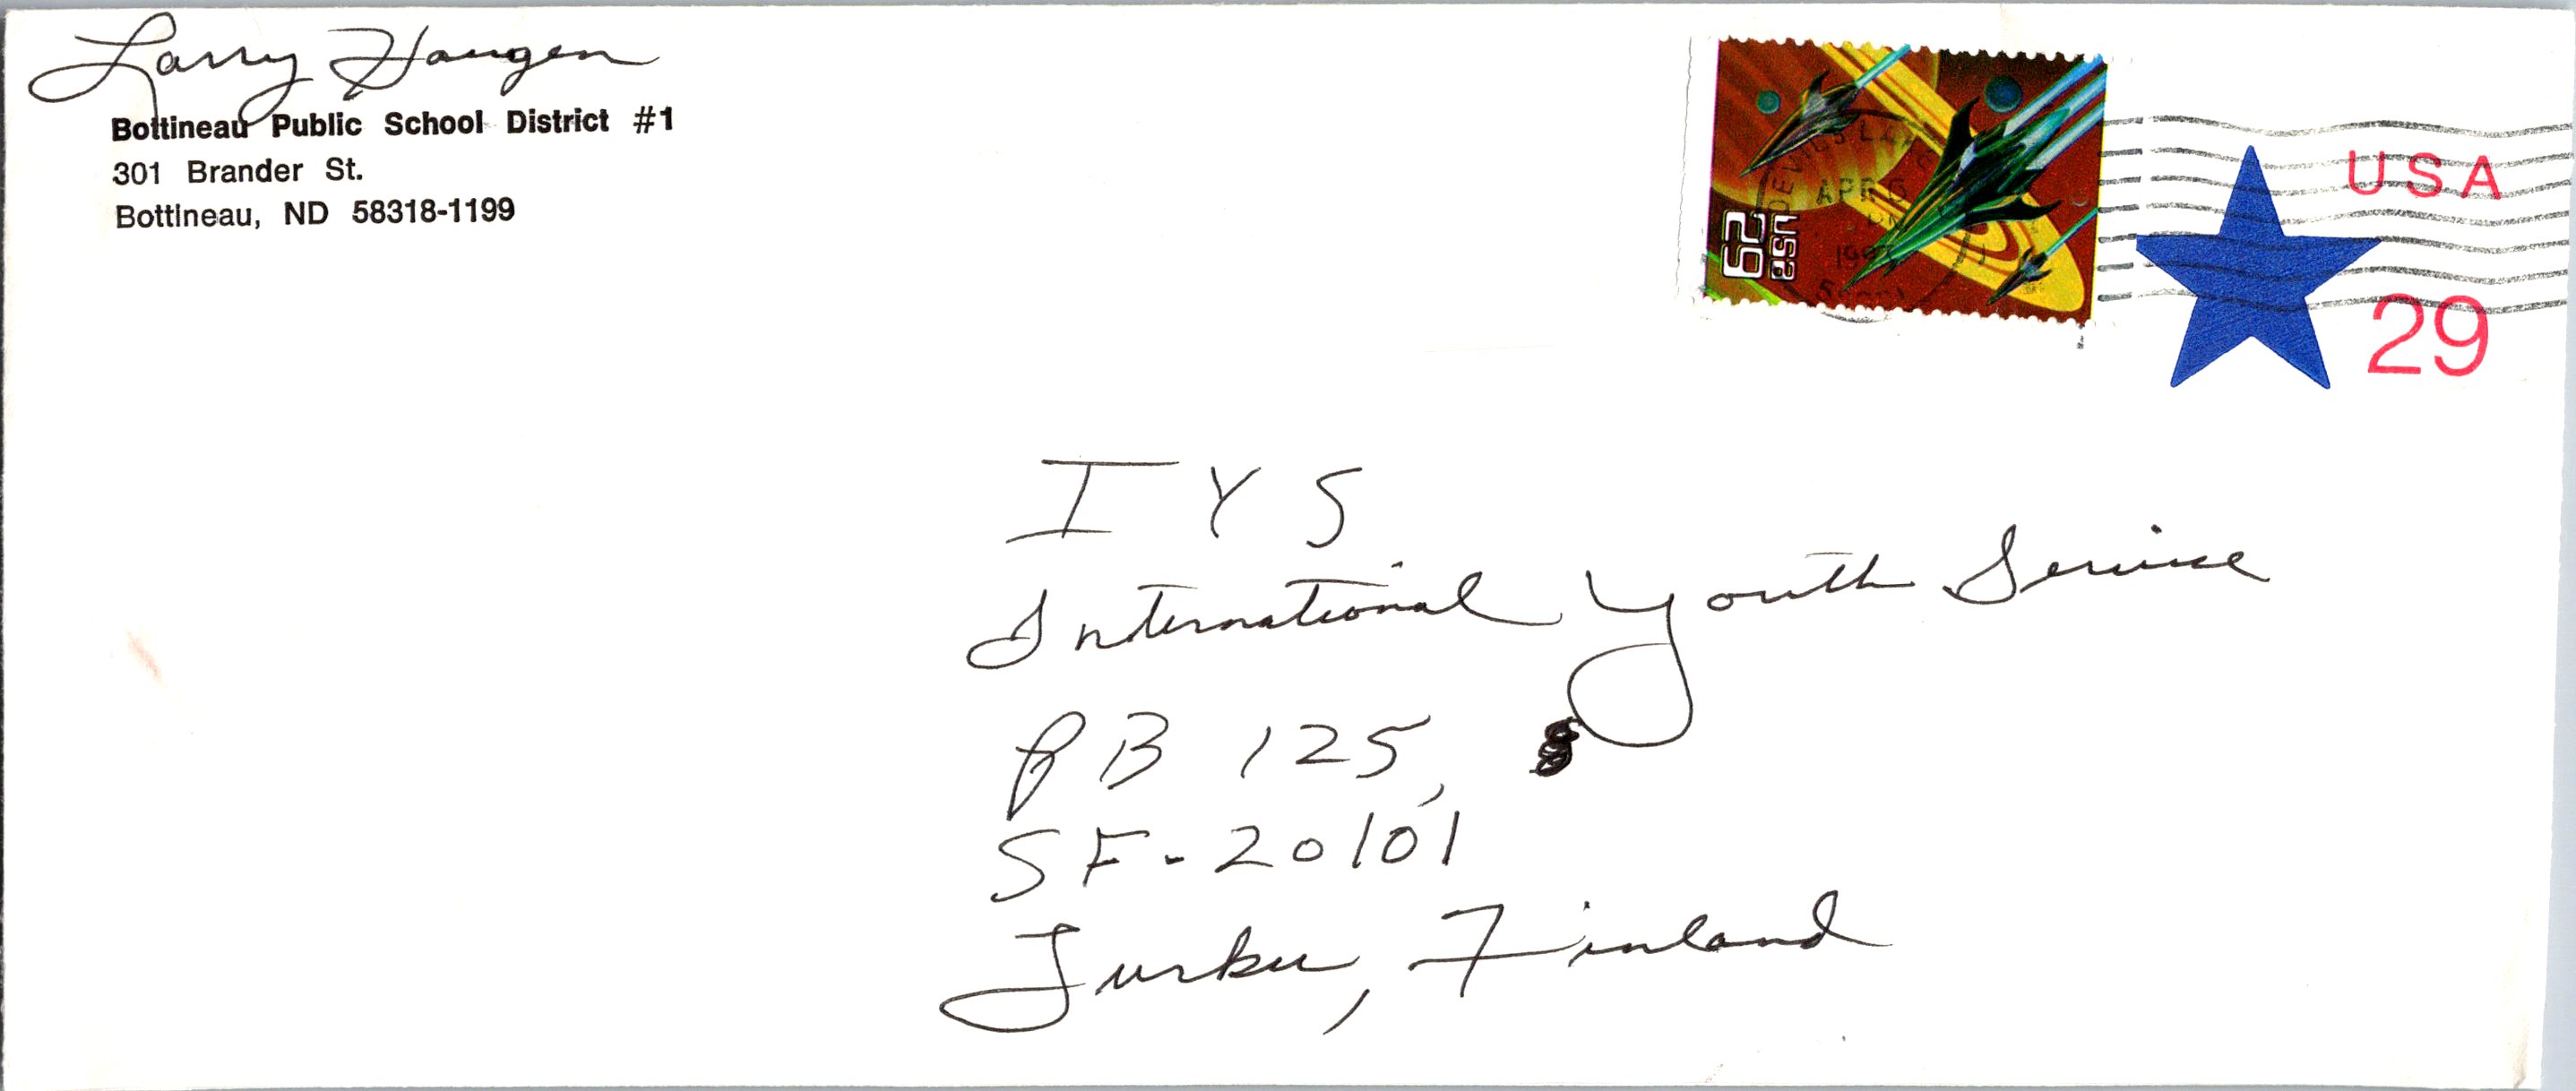 Larry Haugen
Bottineau Public School District #1
301 Brander St.
Bottineau, ND 58318-1199
29
USA
DEVILS LAKE
APR 5
PM
USA
29
I Y S
International Youth Service
PB 125,
SF-20101
Turku, Finland